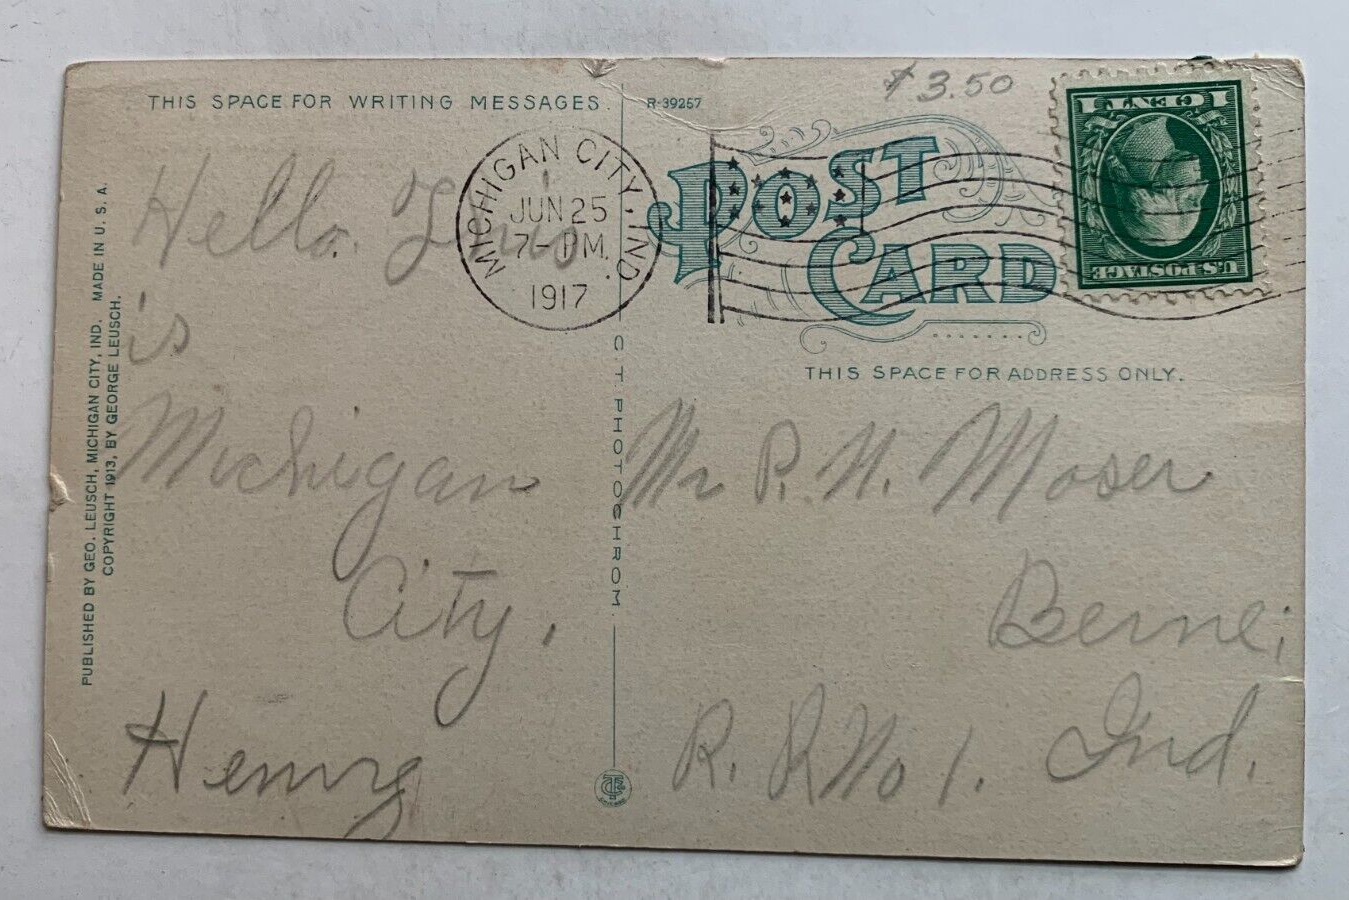 THIS SPACE FOR WRITING MESSAGES.
R-39257
$3.50
MICHIGAN CITY, IND.
1
JUN 25
7-PM.
1917
POST
CARD
1 CENT 1
U.S. POSTAGE
THIS SPACE FOR ADDRESS ONLY.
Hello.
is
Michigan
City.
Henry
Mr P. N. Moser
Berne,
R. R No 1. Ind.
C. T. PHOTOCHROM
PUBLISHED BY GEO. LEUSCH, MICHIGAN CITY, IND. MADE IN U. S. A.
COPYRIGHT 1913, BY GEORGE LEUSCH.